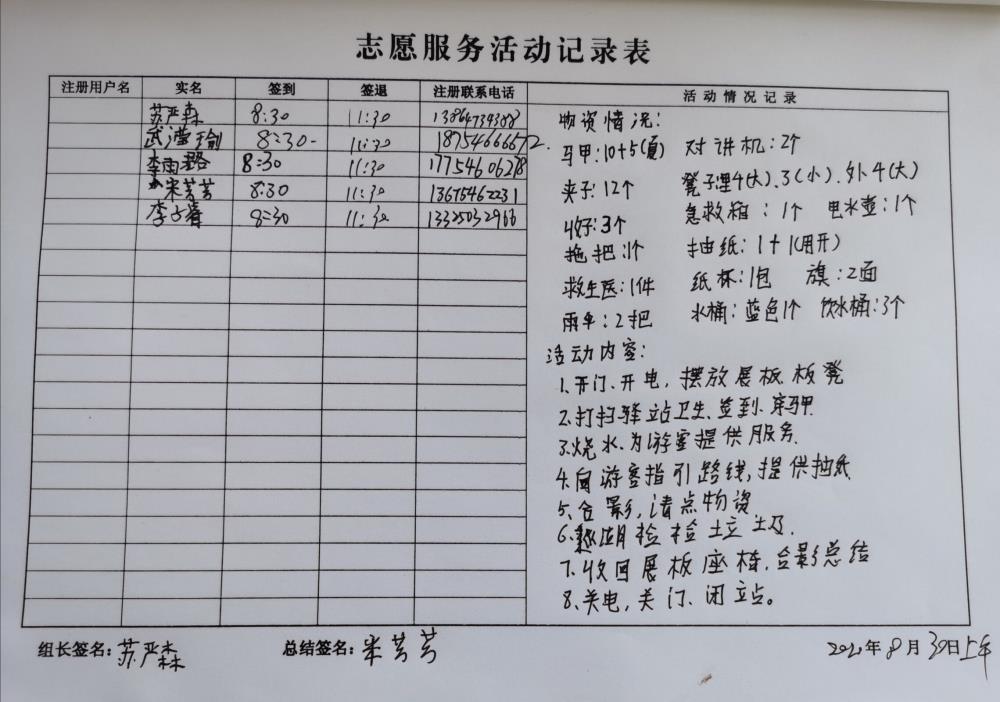 志愿服务活动记录表
注册用户名 实名 签到 签退 注册联系电话 活动情况记录
苏严森 8:30 11:30 13864734388
武滢瑜 8:30 11:30 18754666672
李雨璐 8:30 11:30 17754606278
宋芳芳 8:30 11:30 13675462231
李子睿 8:30 11:30 13325032966
物资情况:
马甲:10+5(夏) 对讲机:2个
夹子:12个 凳子:里4(大)、3(小)、外4(大)
3个 急救箱:1个 电水壶:1个
拖把:1个 抽纸:1+1(用开)
救生医:1件 纸杯:1包 旗:2面
雨伞:2把 水桶:蓝色1个 饮水桶:3个
活动内容:
1.开门、开电,摆放展板、板凳
2.打扫驿站卫生、签到、穿马甲
3.烧水、为游客提供服务.
4.向游客指引路线,提供抽纸
5、合影,清点物资
6、湖捡捡垃圾.
7、收回展板座椅,合影总结
8、关电,关门、闭站。
组长签名:苏严森 总结签名:宋芳芳 2020年8月30日上午